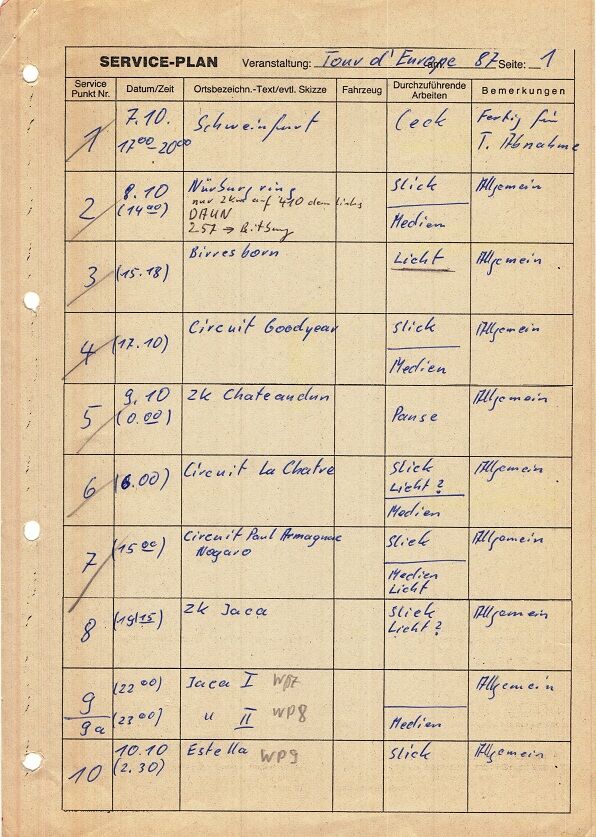 SERVICE-PLAN Veranstaltung: Tour d'Europe am 87 Seite: 1
Service Punkt Nr. Datum/Zeit Ortsbezeichn.-Text/evtl. Skizze Fahrzeug Durchzuführende Arbeiten Bemerkungen
1 7.10. Schweinfurt Ceck Fertig für
17 00 - 20 00 T. Abnahme
2 8.10 Nürburgring Slick Allgemein
(14 00) nur 2km auf 410 dann links
DAUN Medien
257 → Bitburg
3 (15.18) Birresborn Licht Allgemein
4 (17.10) Circuit Goodyear Slick Allgemein
Medien
5 9.10 ZK Chateaudun Allgemein
(0.00) Pause
6 (6.00) Circuit La Chatre Slick Allgemein
Licht?
Medien
7 (15 00) Circuit Paul Armagnac Slick Allgemein
Nogaro
Medien
Licht
8 (19 15) ZK Jaca Slick Allgemein
Licht?
9 (22 00) Jaca I WP7 Allgemein
9a (23 00) " II WP8 Medien
10 10.10 Estella WP9 Slick Allgemein
(2.30)